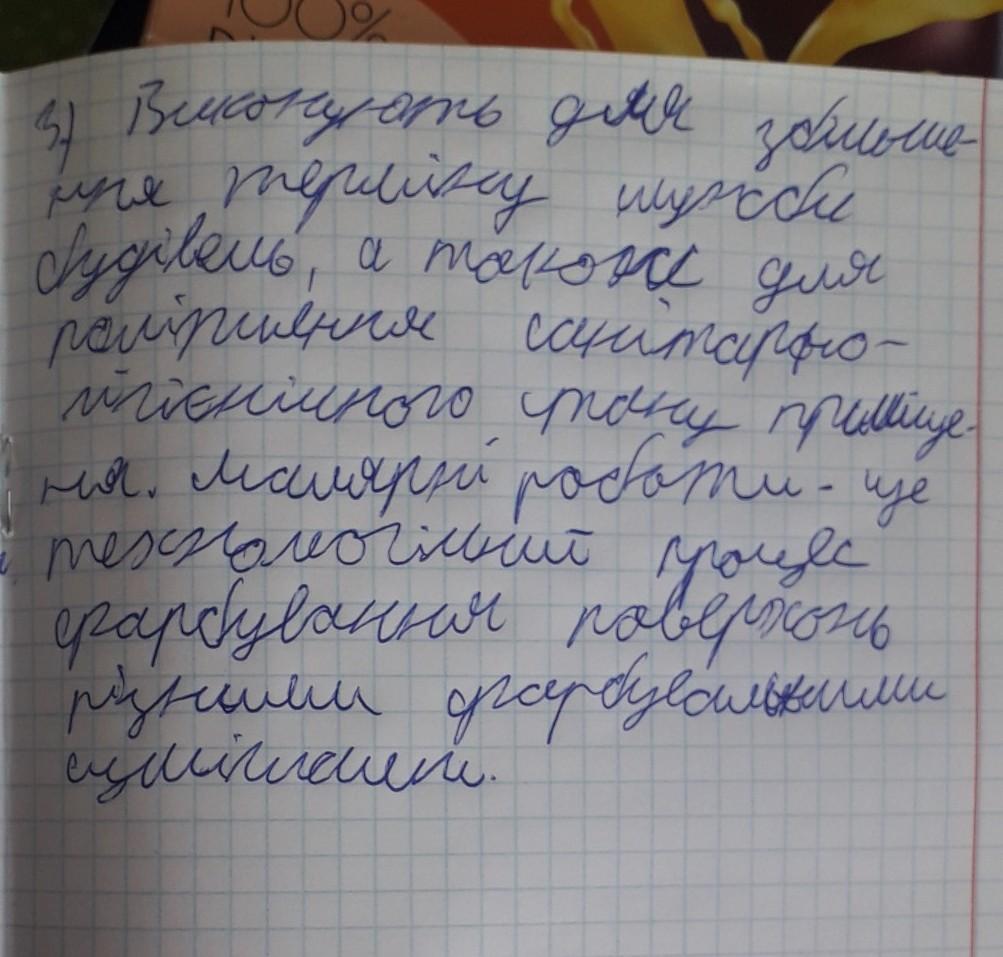 100%
3) Виконують для збільше-
ння терміну служби
будівель, а також для
поліпшення санітарно-
гігієнічного стану приміще-
ння. Малярні роботи - це
технологічний процес
фарбування поверхонь
різними фарбувальними
сумішами.